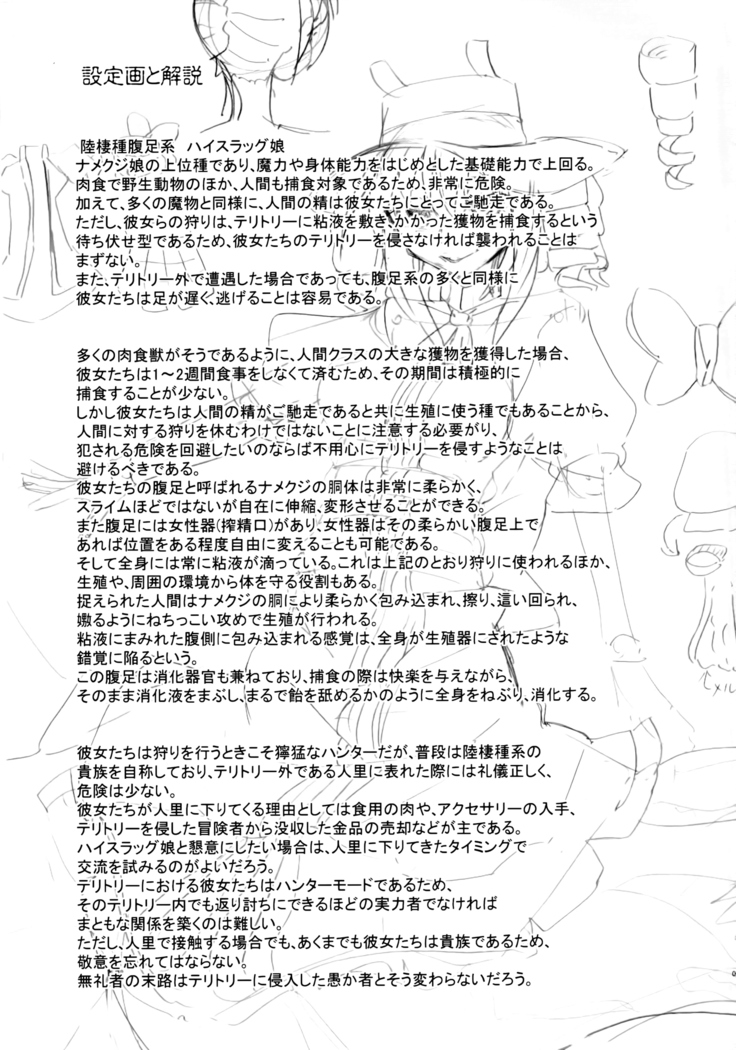 設定画と解説
陸棲種腹足系　ハイスラッグ娘
ナメクジ娘の上位種であり、魔力や身体能力をはじめとした基礎能力で上回る。
肉食で野生動物のほか、人間も捕食対象であるため、非常に危険。
加えて、多くの魔物と同様に、人間の精は彼女たちにとってご馳走である。
ただし、彼女らの狩りは、テリトリーに粘液を敷き、かかった獲物を捕食するという
待ち伏せ型であるため、彼女たちのテリトリーを侵さなければ襲われることは
まずない。
また、テリトリー外で遭遇した場合であっても、腹足系の多くと同様に
彼女たちは足が遅く、逃げることは容易である。
多くの肉食獣がそうであるように、人間クラスの大きな獲物を獲得した場合、
彼女たちは1～2週間食事をしなくて済むため、その期間は積極的に
捕食することが少ない。
しかし彼女たちは人間の精がご馳走であると共に生殖に使う種でもあることから、
人間に対する狩りを休むわけではないことに注意する必要がり、
犯される危険を回避したいのならば不用心にテリトリーを侵すようなことは
避けるべきである。
彼女たちの腹足と呼ばれるナメクジの胴体は非常に柔らかく、
スライムほどではないが自在に伸縮、変形させることができる。
また腹足には女性器(搾精口)があり、女性器はその柔らかい腹足上で
あれば位置をある程度自由に変えることも可能である。
そして全身には常に粘液が滴っている。これは上記のとおり狩りに使われるほか、
生殖や、周囲の環境から体を守る役割もある。
捉えられた人間はナメクジの胴により柔らかく包み込まれ、擦り、這い回られ、
嬲るようにねちっこい攻めで生殖が行われる。
粘液にまみれた腹側に包み込まれる感覚は、全身が生殖器にされたような
錯覚に陥るという。
この腹足は消化器官も兼ねており、捕食の際は快楽を与えながら、
そのまま消化液をまぶし、まるで飴を舐めるかのように全身をねぶり、消化する。
彼女たちは狩りを行うときこそ獰猛なハンターだが、普段は陸棲種系の
貴族を自称しており、テリトリー外である人里に表れた際には礼儀正しく、
危険は少ない。
彼女たちが人里に下りてくる理由としては食用の肉や、アクセサリーの入手、
テリトリーを侵した冒険者から没収した金品の売却などが主である。
ハイスラッグ娘と懇意にしたい場合は、人里に下りてきたタイミングで
交流を試みるのがよいだろう。
テリトリーにおける彼女たちはハンターモードであるため、
そのテリトリー内でも返り討ちにできるほどの実力者でなければ
まともな関係を築くのは難しい。
ただし、人里で接触する場合でも、あくまでも彼女たちは貴族であるため、
敬意を忘れてはならない。
無礼者の末路はテリトリーに侵入した愚か者とそう変わらないだろう。